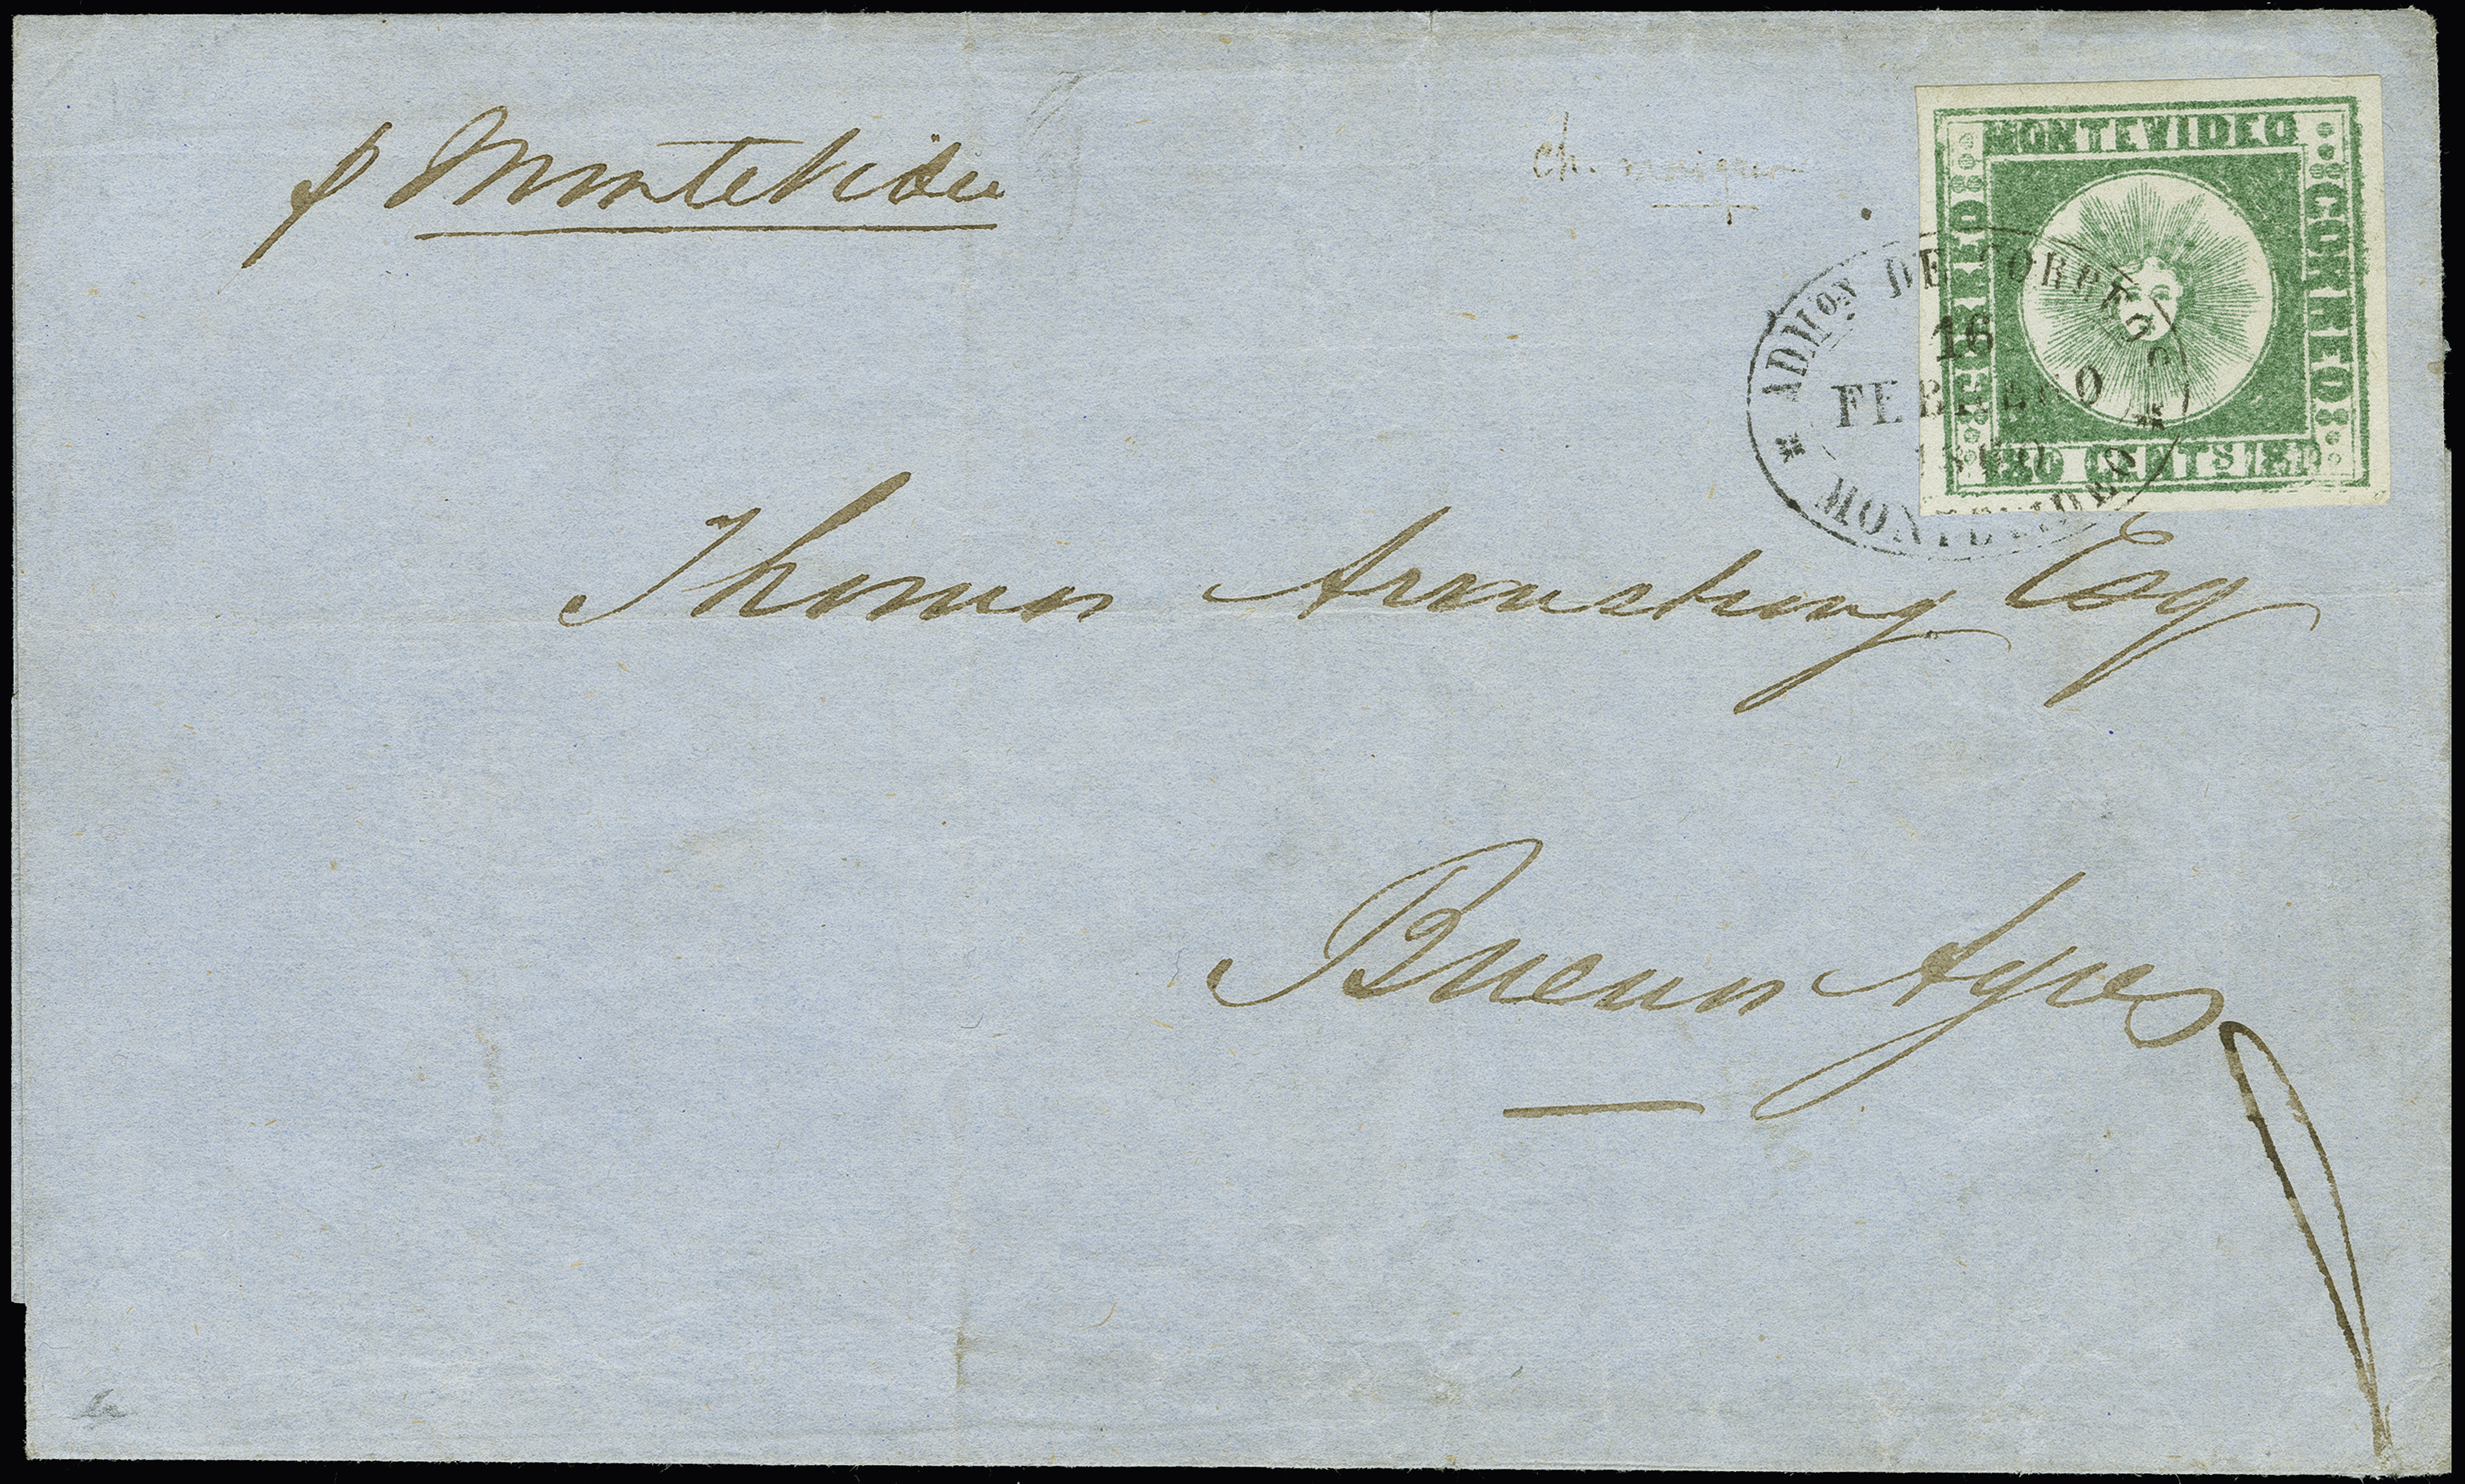 p Montevideo
ch.
MONTEVIDEO
CORREO
180 CENTS
ADMON DE CORREOS
16
FEBRERO
1860
MONTEVIDEO
Thomas Armstrong Esq
Buenos Ayres